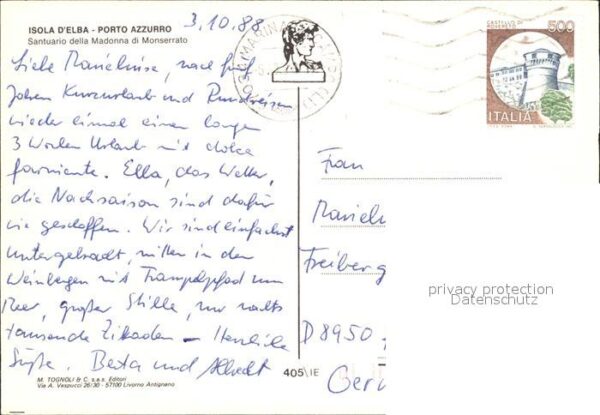 3.10.88
ISOLA D'ELBA - PORTO AZZURRO
Santuario della Madonna di Monserrato
Liebe Marieluise, nach fünf
Jahren Kurzurlaub und Rundreisen
wieder einmal einen langen
3 Wochen Urlaub mit dolce
farniente. Elba, das Wetter,
die Nachsaison sind dafür
wie geschaffen. Wir sind einfachst
untergebracht, mitten in den
Weinbergen mit Trampelpfad zum
Meer, großer Stille, nur nachts
tausende Zikaden - Herzliche
Grüße. Berta und Albert
M. TOGNOLI & C. s.a.s. Editori
Via A. Vespucci 26/30 - 57100 Livorno Antignano
405\IE
CASTELLO DI
ROVERETO
500
ITALIA
Frau
Mariel
Freiberg
privacy protection
Datenschutz
D 8950
Ger